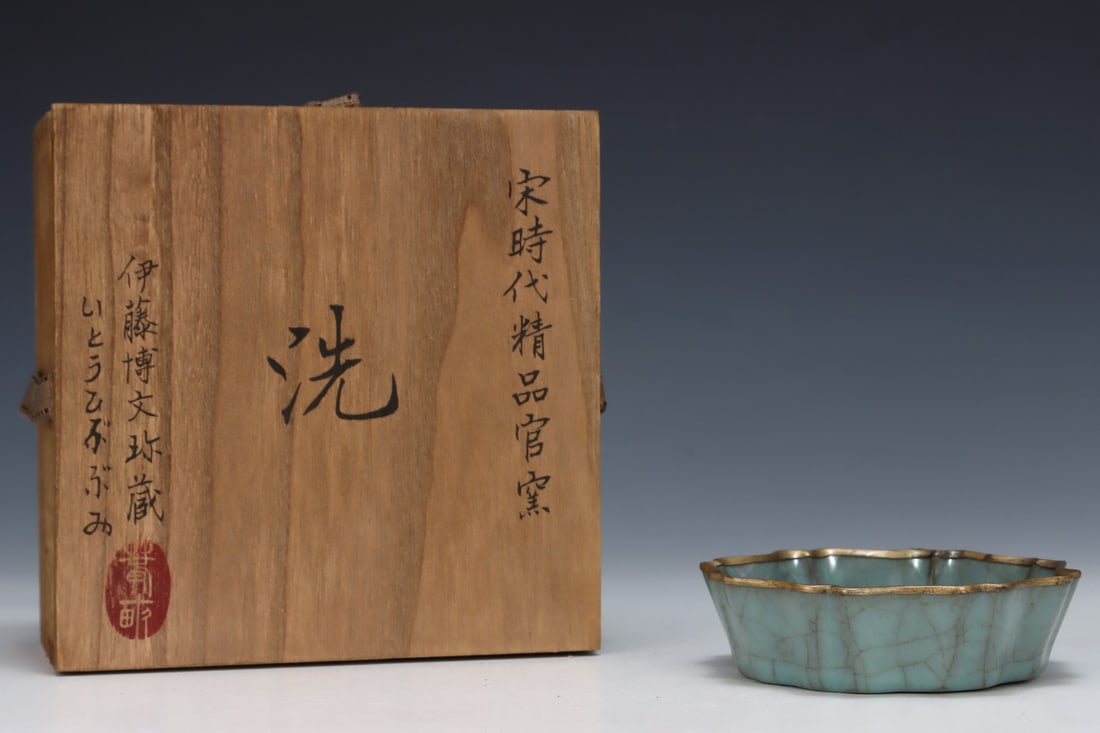 宋時代精品官窯
洗
伊藤博文珎蔵
いとうひろぶみ